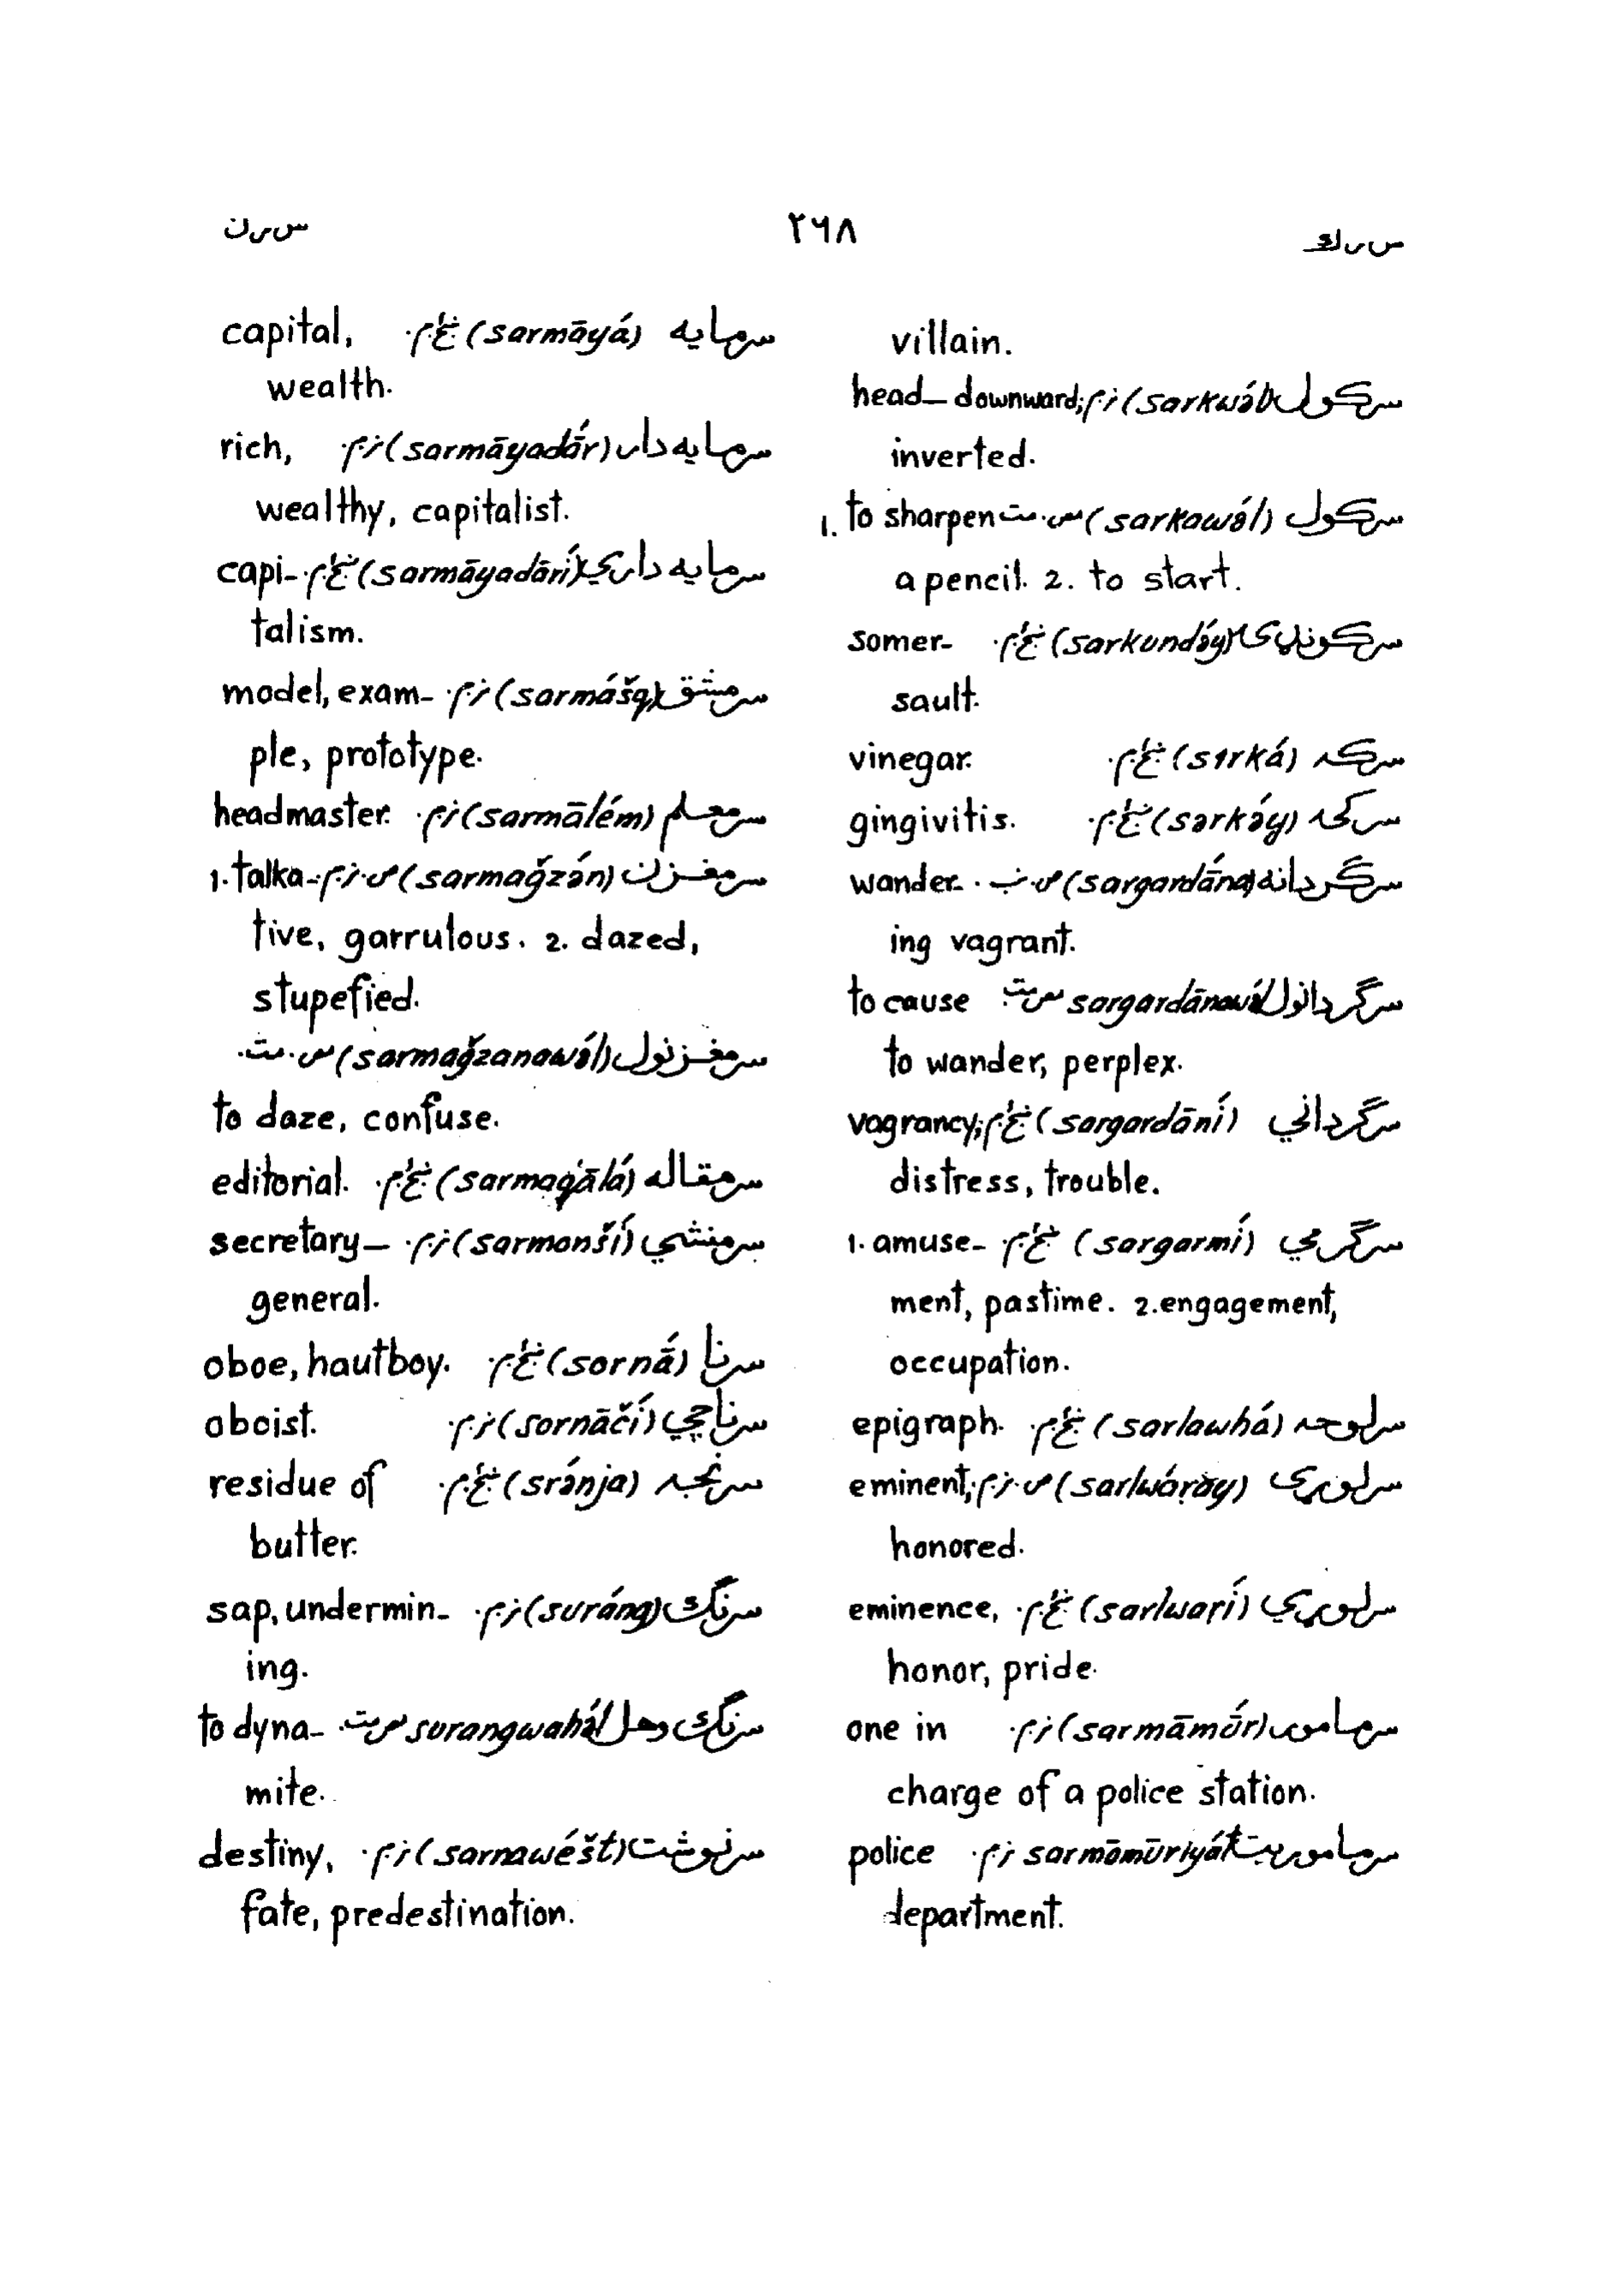 س ر ک ٢٦٨ س ر ن
villain.
سرکول (sarkwə́l) head-downward;
inverted.
سرکول (sarkawə́l) 1. to sharpen
a pencil. 2. to start.
سرکونډۍ (sarkundə́y) somer-
sault.
سرکه (sirká) vinegar.
سرکۍ (sərkə́y) gingivitis.
سرګردانه (sargardā́na) wander-
ing vagrant.
سرګردانول sargardānawə́l to cause
to wander, perplex.
سرګرداني (sargardāní) vagrancy;
distress, trouble.
سرګرمي (sargarmí) 1. amuse-
ment, pastime. 2. engagement,
occupation.
سرلوحه (sarlawhá) epigraph.
سرلوړی (sarlwáṛay) eminent;
honored.
سرلوړي (sarlwaṛí) eminence,
honor, pride.
سرمامور (sarmāmúr) one in
charge of a police station.
سرماموریت sarmāmūriyát police
department.
سرمایه (sarmāyá) capital,
wealth.
سرمایه دار (sarmāyadā́r) rich,
wealthy, capitalist.
سرمایه داري (sarmāyadārí) capi-
talism.
سرمشق (sarmášq) model, exam-
ple, prototype.
سرمعلم (sarmālém) headmaster.
سرمغزن (sarmağzə́n) 1. talka-
tive, garrulous. 2. dazed,
stupefied.
سرمغزنول (sarmağzanawə́l)
to daze, confuse.
سرمقاله (sarmaqālá) editorial.
سرمنشي (sarmonší) secretary-
general.
سرنا (sornā́) oboe, hautboy.
سرناچي (sornāčí) oboist.
سرنجه (srə́nja) residue of
butter.
سرنګ (suráng) sap, undermin-
ing.
سرنګ وهل surangwahə́l to dyna-
mite.
سرنوشت (sarnawéšt) destiny,
fate, predestination.